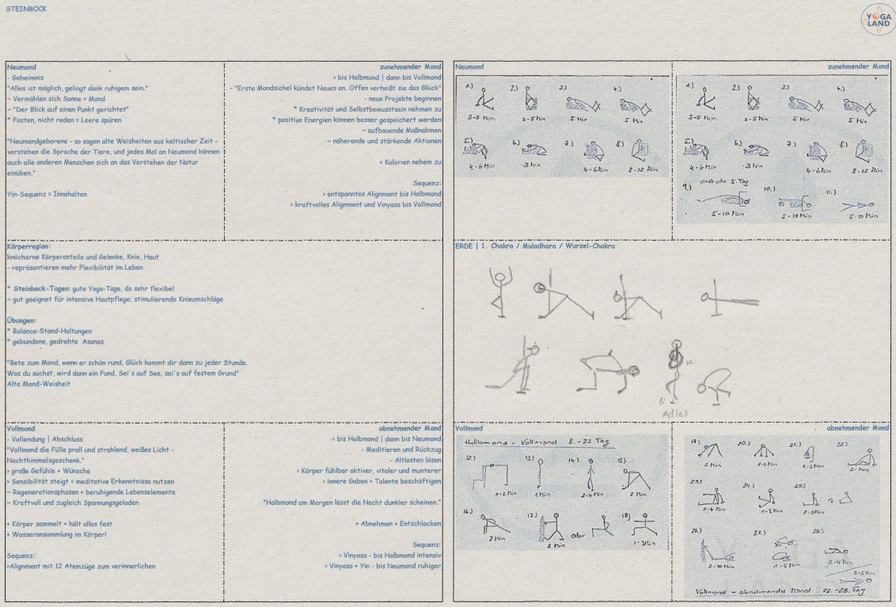 STEINBOCK
YOGA
LAND
Neumond
- Geheimnis
"Alles ist möglich, gelingt dank ruhigem sein."
~ Vermählen sich Sonne + Mond
~ "Der Blick auf einen Punkt gerichtet"
* Fasten, nicht reden = Leere spüren
"Neumondgeborene - so sagen alte Weisheiten aus keltischer Zeit -
verstehen die Sprache der Tiere, und jedes Mal an Neumond können
auch alle anderen Menschen sich an das Verstehen der Natur
einüben."
Yin-Sequenz = Innehalten
zunehmender Mond
> bis Halbmond | dann bis Vollmond
- "Erste Mondsichel kündet Neues an. Offen verheißt sie das Glück"
- neue Projekte beginnen
* Kreativität und Selbstbewusstsein nehmen zu
* positive Energien können besser gespeichert werden
~ aufbauende Maßnahmen
~ nährende und stärkende Aktionen
+ Kalorien nehmen zu
Sequenz:
> entspanntes Alignment bis Halbmond
> kraftvolles Alignment und Vinyasa bis Vollmond
Körperregion:
knöcherne Körperanteile und Gelenke, Knie, Haut
- repräsentieren mehr Flexibilität im Leben
* Steinbock-Tagen: gute Yoga-Tage, da sehr flexibel
~ gut geeignet für intensive Hautpflege; stimulierende Knieumschläge
Übungen:
* Balance-Stand-Haltungen
* gebundene, gedrehte Asanas
"Bete zum Mond, wenn er schön rund, Glück kommt dir dann zu jeder Stunde.
Was du suchst, wird dann ein Fund, Sei's auf See, sei's auf festem Grund"
Alte Mond-Weisheit
Vollmond
- Vollendung | Abschluss
"Vollmond die Fülle prall und strahlend, weißes Licht -
Nachthimmelsgeschenk."
> große Gefühle + Wünsche
> Sensibilität steigt = meditative Erkenntnisse nutzen
~ Regenerationsphasen + beruhigende Lebenselemente
~ Kraftvoll und zugleich Spannungsgeladen
+ Körper sammelt + hält alles fest
+ Wasseransammlung im Körper!
Sequenz:
>Alignment mit 12 Atemzüge zum verinnerlichen
abnehmender Mond
> bis Halbmond | dann bis Neumond
- Meditieren und Rückzug
- Altlasten lösen
> Körper fühlbar aktiver, vitaler und munterer
> innere Gaben + Talente beschäftigen
"Halbmond am Morgen lässt die Nacht dunkler scheinen."
+ Abnehmen + Entschlacken
Sequenz:
> Vinyasa - bis Halbmond intensiv
> Vinyasa + Yin - bis Neumond ruhiger
Neumond
1.) 2.) 3.) 4.)
3-5 Min 3-5 Min 5 Min 5 Min
5.) 6.) 7.) 8.)
4-6 Min 3 Min 4-6 Min 8-12 Min
zunehmender Mond
1.) 2.) 3.) 4.)
3-5 Min 3-5 Min 5 Min 5 Min
5.) 6.) 7.) 8.)
4-6 Min 3 Min 4-6 Min 8-12 Min
5. Tag
9.) 10.) 11.)
5-10 Min 5-10 Min 5-10 Min
ERDE | 1. Chakra / Muladhara / Wurzel-Chakra
Adler
Vollmond
Halbmond - Vollmond 8.-22 Tag
12.) 13.) 14.) 15.)
1-2 Min 1 Min 2 Min 2 Min
16.) 17.) oder 18.)
2 Min 2 Min 1-3 Min
abnehmender Mond
19.) 20.) 21.) 22.)
2 Min 1-2 Min 1-2 Min 2-3 Min
23.) 24.) 25.)
2-4 Min 1-3 Min 2-3 Min
26.) 27.) 28.)
2-10 Min 1-5 Min
Vollmond - abnehmender Mond 22.-28. Tag